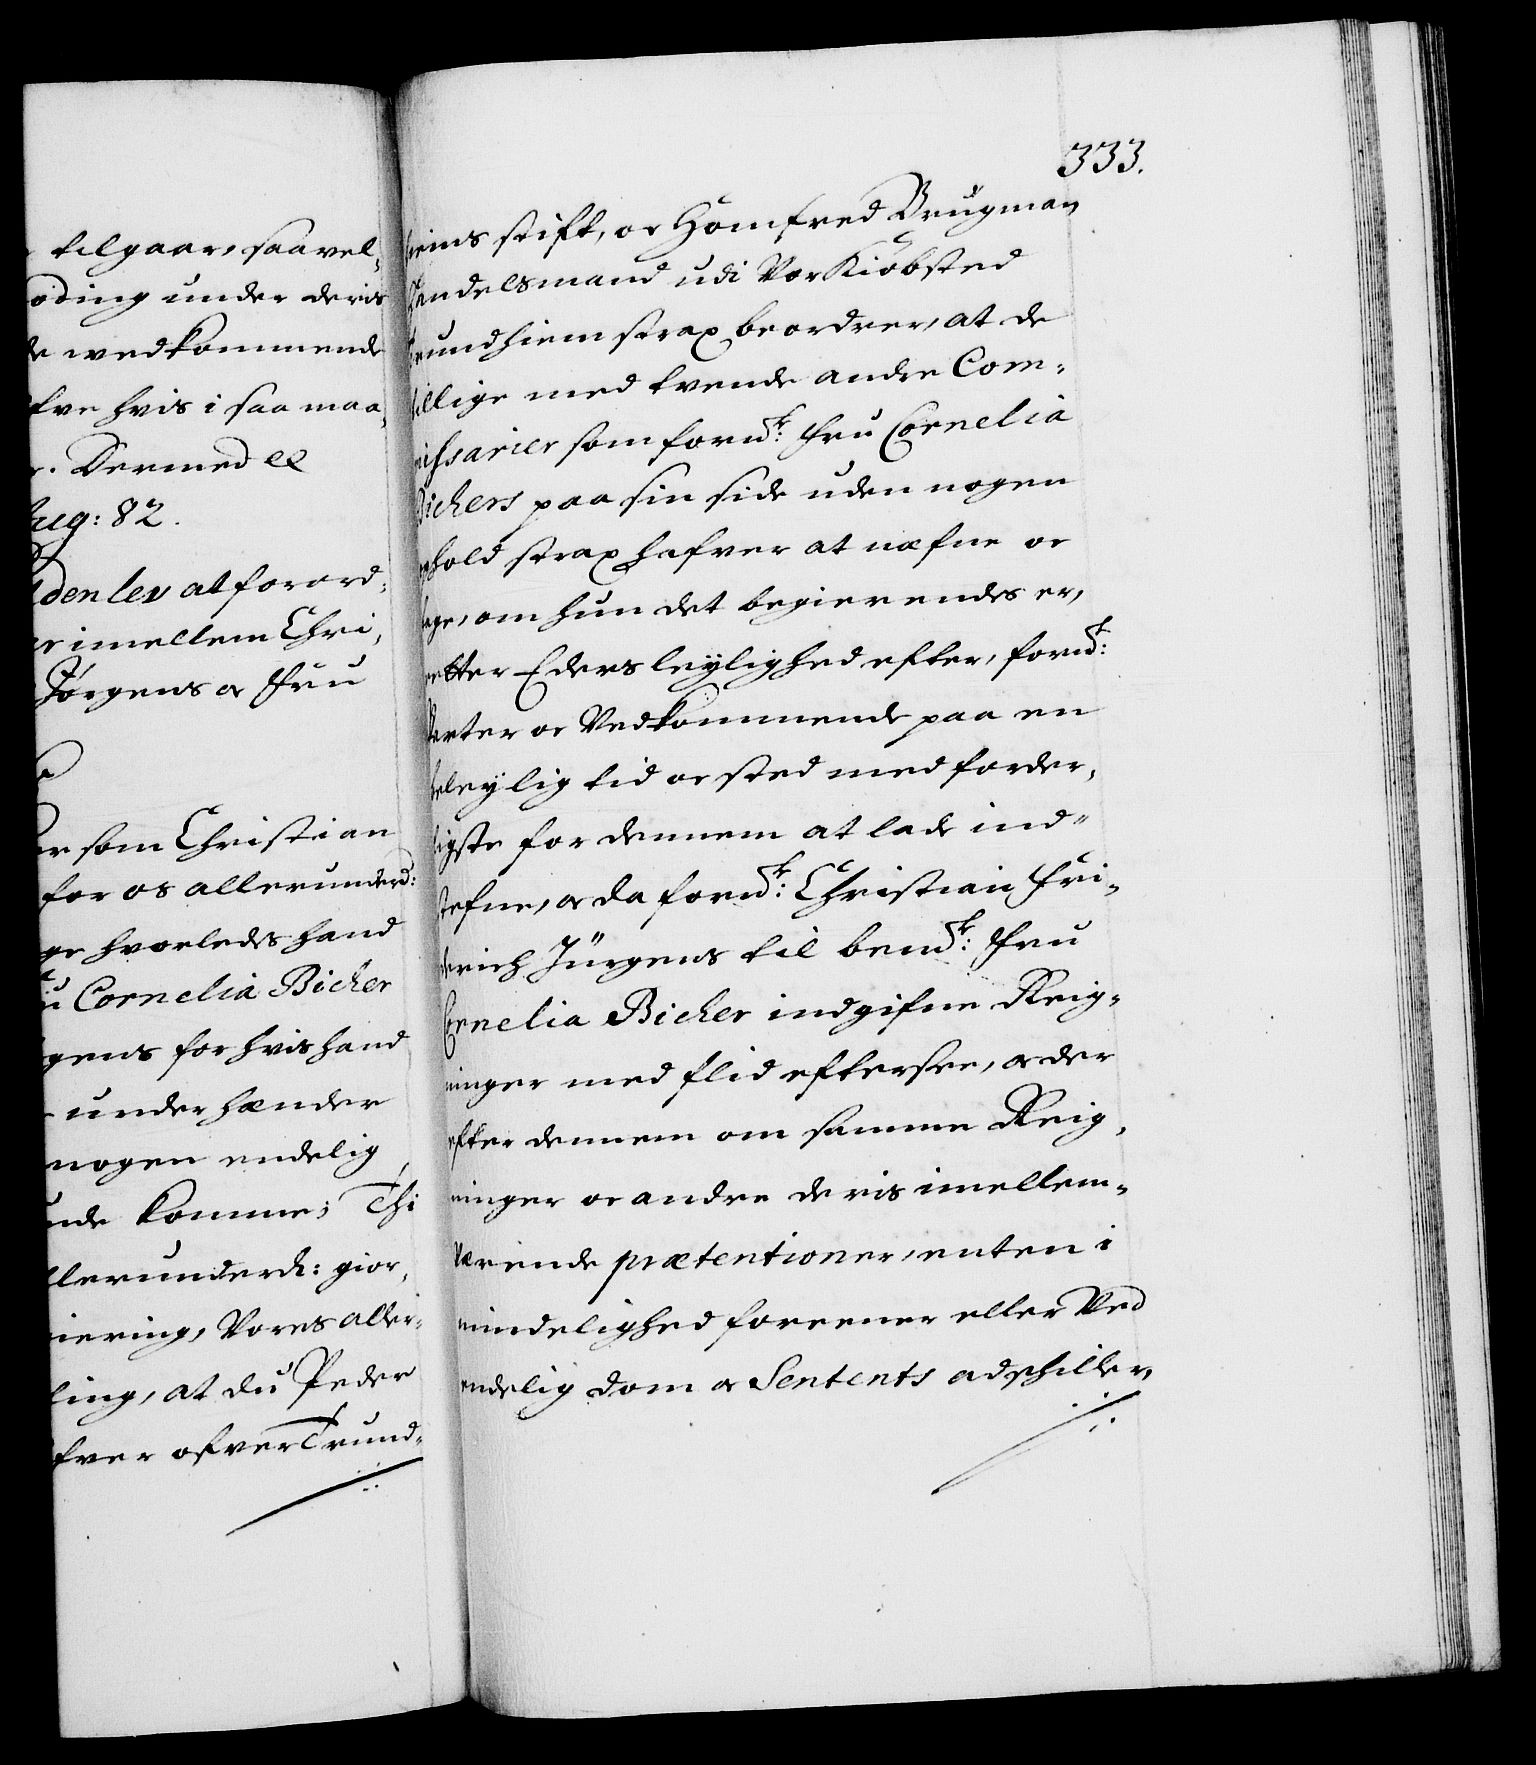 tilgaar, saavel-
oding under deris
wedkommende
fve hvis i saa maa-
Dermed &
Aug: 82.
den ler at forord-
er imellem Chri-
Jørgens oc Fru
er som Christian
for os allerunderd:
ge hvorledes hand
u Cornelia Bicker
gens for hvis hand
under hænder
nogen endelig
nde komme; Thi
llerunderd: gior-
iering, Vores aller-
ling, at du Peder
fver ofver Trund-
333.
heims stift, oc Homfred Brugman
Handelsmand udi Vor Kiøbsted
Trundhiem strax beordrer, at de
tillige med tvende andre Com-
missarier som fornd:te Fru Cornelia
Bickers paa sin side uden nogen
ophold strax hafver at nefne oc
tage, om hun det begierendes er,
retter Eders leylighed efter, fornd:te
Parter oc Vedkommende paa en
beleylig tid oc sted med forder-
ligste for dennem at lade ind-
stefne, oc da fornd:te Christian Fri-
derich Jürgens til bemd:te Fru
Cornelia Bicker indgifne Reig-
ninger med flid eftersee, oc der
efter dennem om samme Reig-
ninger oc andre deris imellem-
værende prætentioner, enten i
mindelighed foreener eller Ved
endelig dom oc Sentents adskiller,